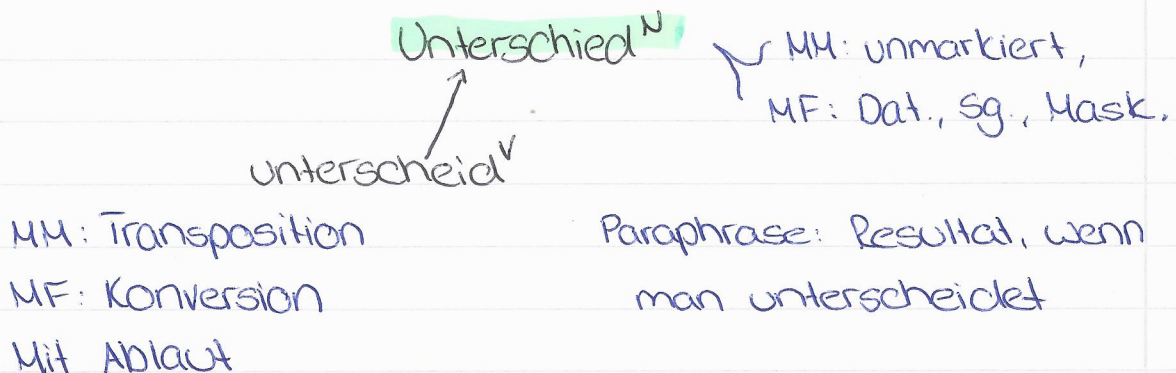 Unterschied^N
MM: unmarkiert,
MF: Dat., Sg., Mask.
unterscheid^V
MM: Transposition
MF: Konversion
Mit Ablaut
Paraphrase: Resultat, wenn
man unterscheidet